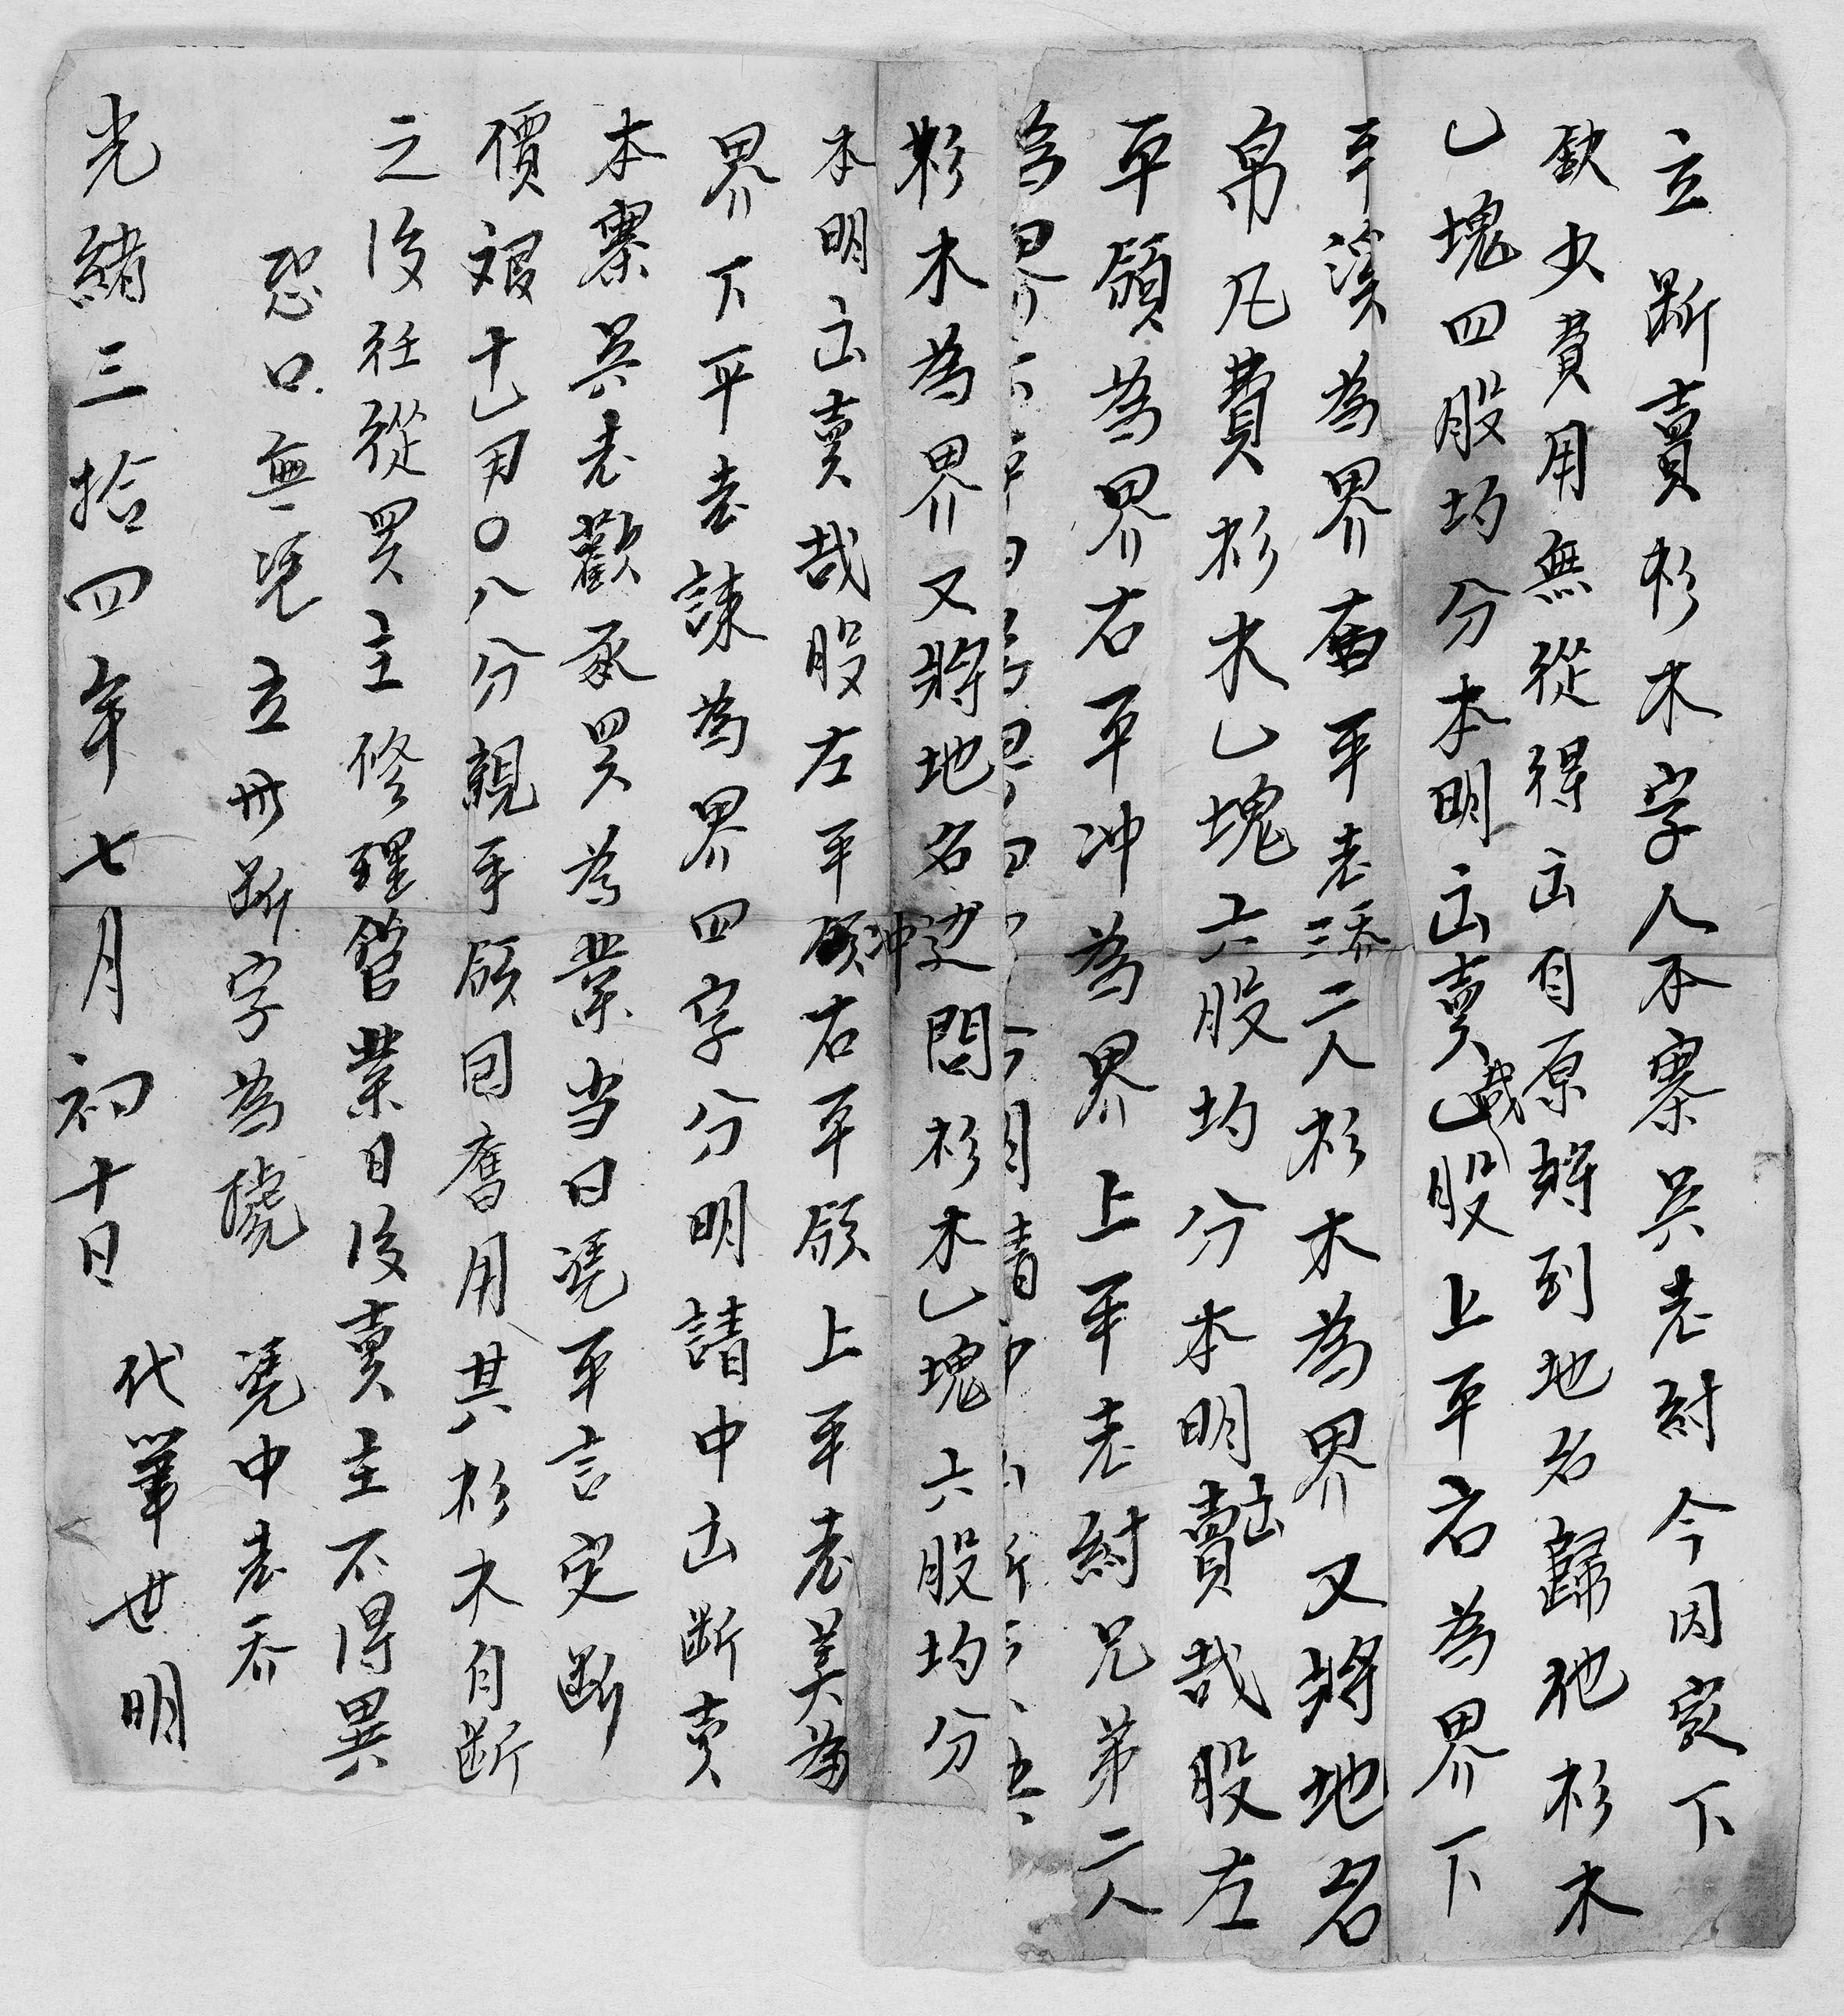 立斷賣杉木字人本寨吳老尌今因家下
欽少費用無從得出自原將到地名歸他杉木
乙塊四股均分本明出賣貳股上平岩為界下
平溪為界右平老三喬二人杉木為界又將地名
帛凡費杉木乙塊六股均分本明出賣貳股左
平領為界右平冲為界上平老紂兄弟二人
為界
杉木為界又將地名冲边間杉木乙塊六股均分
本明出賣貳股左平領右平領上平老美為
界下平老諫為界四字分明請中出斷賣
本寨吳老歡承買為業当日凴平言定斷
價艮十乙用〇八分親手領回奮用其杉木自斷
之後任從買主修理管業日後賣主不得異
恐口無凴立此斷字為㨿 凴中老乔
代筆世明
光緒三拾四年七月初十日